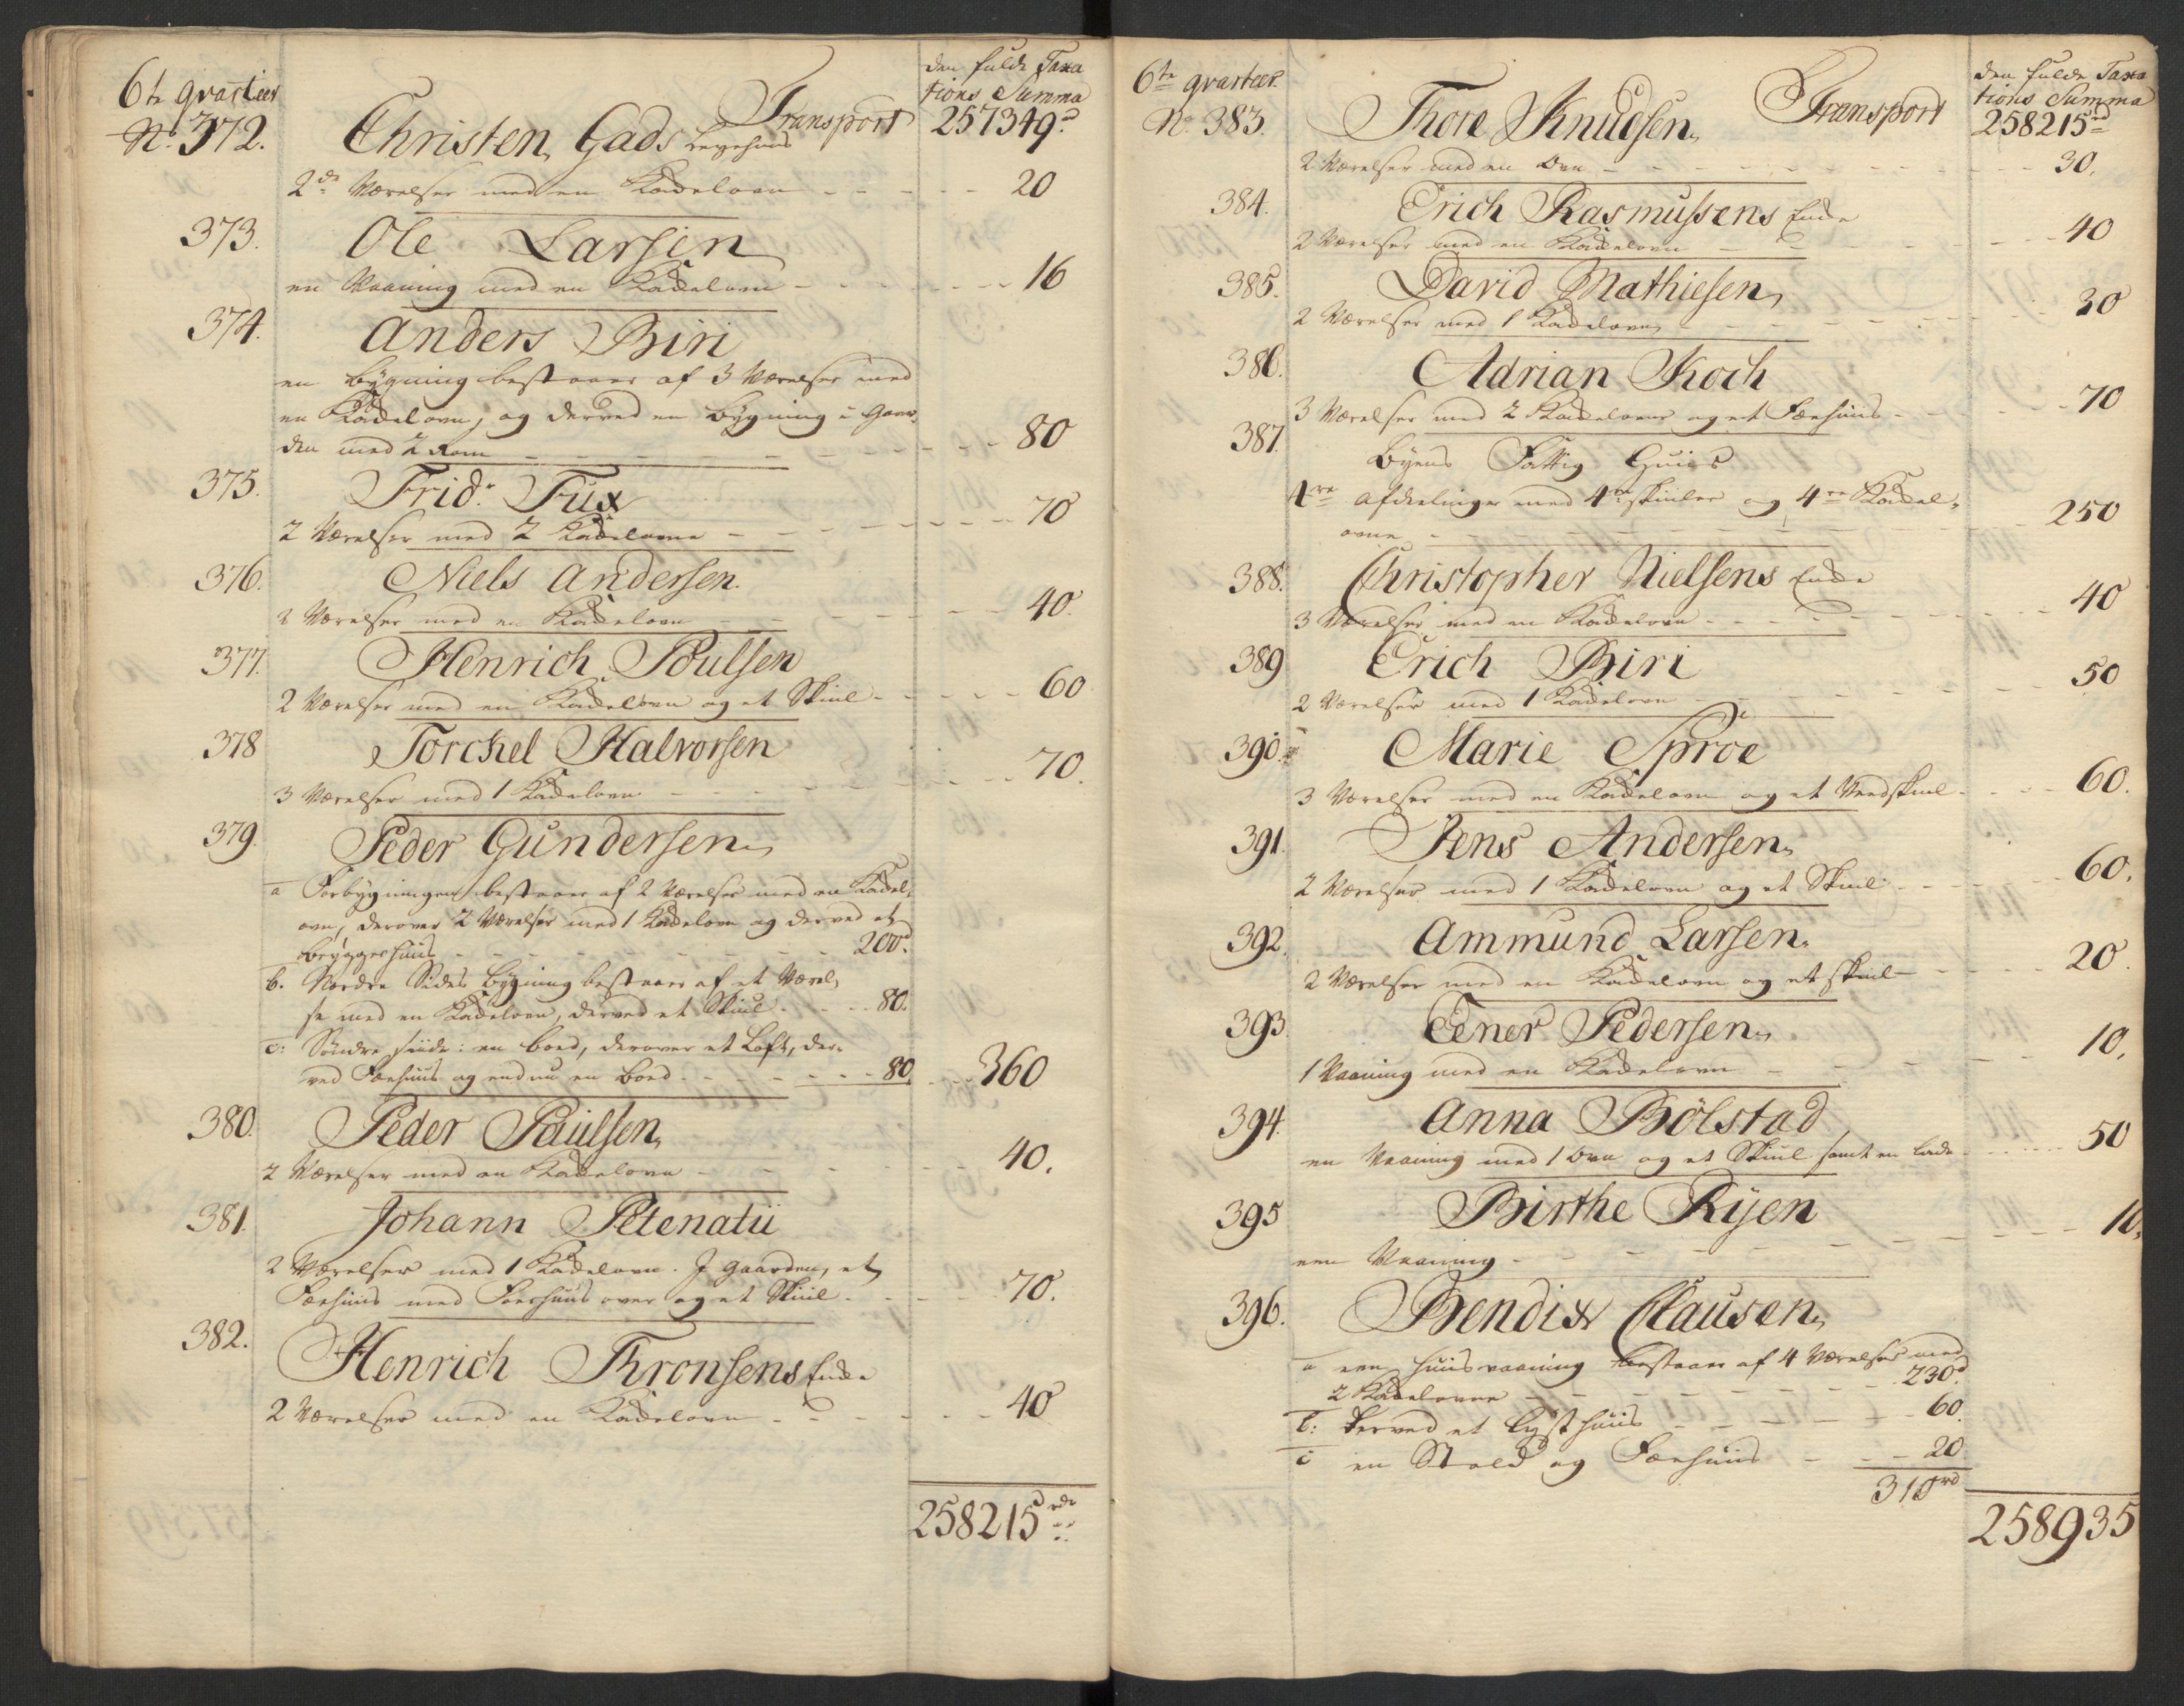 6te qvarteer
den fulde Taxa
tions Summa
No. 372. Christen Gads Leyehuus Transport 257349 rd
2de Værelser med en Kackelovn - - - 20
373. Ole Larsen
en Vaaning med en Kackelovn - - - 16
374. Anders Biri
en Bygning bestaaer af 3 Værelser med
en Kackelovn, og derved en Bygning i Gaar-
den med 2 Rom - - - 80
375. Frid: Fux
2 Værelser med 2 Kackelovne - - - 70
376. Niels Andersen.
2 Værelser med en Kackelovn - - - 40.
377. Henrich Poulsen
2 Værelser med en Kackelovn og et Skiul - - - 60
378 Torchel Halvorsen
3 Værelser med 1 Kackelovn - - - 70.
379. Peder Gundersen
a Forbygningen bestaaer af 2 Værelser med en Kackel-
ovn, derover 2 Værelser med 1 Kackelovn og derved et
Bryggerhuus - - - 200 rd.
b. Nordre Sides Bygning bestaaer af et Værel-
se med en Kackelovn, derved et Skiul - - - 80.
c: Søndre siide: en boed, derover et Loft, der-
ved Fæehuus og endnu en boed - - - 80 - - 360
380. Peder Paulsen
2 Værelser med en Kackelovn - - - 40.
381. Johann Petenatii
2 Værelser med 1 Kackelovn. J Gaarden, et
Fæehuus med Foerhuus over og et Skiul - - - 70.
382. Henrich Thronsens Enke
2 Værelser med en Kackelovn - - - 40
258215 rdr
6te qvarteer
den fulde Taxa
tions Summa
No. 383. Thore Knudsen Transport 258215 rd
2 Værelser med en Ovn - - - 30.
384. Erich Rasmussens Enke
2 Værelser med en Kackelovn - - - 40
385. David Mathiesen
2 Værelser med 1 Kackelovn - - - 30
386. Adrian Koch
3 Værelser med 2 Kackelovne og et Fæehuus - - - 70
387. Byens Fattig Huus
4re afdeelinger med 4re skiuler og 4re Kackel-
ovne - - - 250
388. Christopher Nielsens Enke
3 Værelser med en Kackelovn - - - 40
389 Erich Biri
2 Værelser med 1 Kackelovn - - - 50
390. Marie Sproe
3 Værelser med en Kackelovn og et Veedskiul - - - 60.
391. Jens Andersen
2 Værelser med 1 Kackelovn og et Skiul - - - 60.
392. Ammund Larsen.
2 Værelser med en Kackelovn og et skiul - - - 20.
393. Eener Pedersen
1 Vaaning med en Kackelovn - - - 10.
394. Anna Bölstad
en Vaaning med 1 Ovn og et Skiul samt en lade - - - 50
395 Birthe Ryen
een Vaaning - - - 10.
396. Bendix Clausen
a een huusvaaning bestaaer af 4 Værelser med
2 Kackelovne - - - 230 rd
b: derved et Lysthuus - - - 60.
c en Stald og Fæehuus - - - 20
310 rd
258935